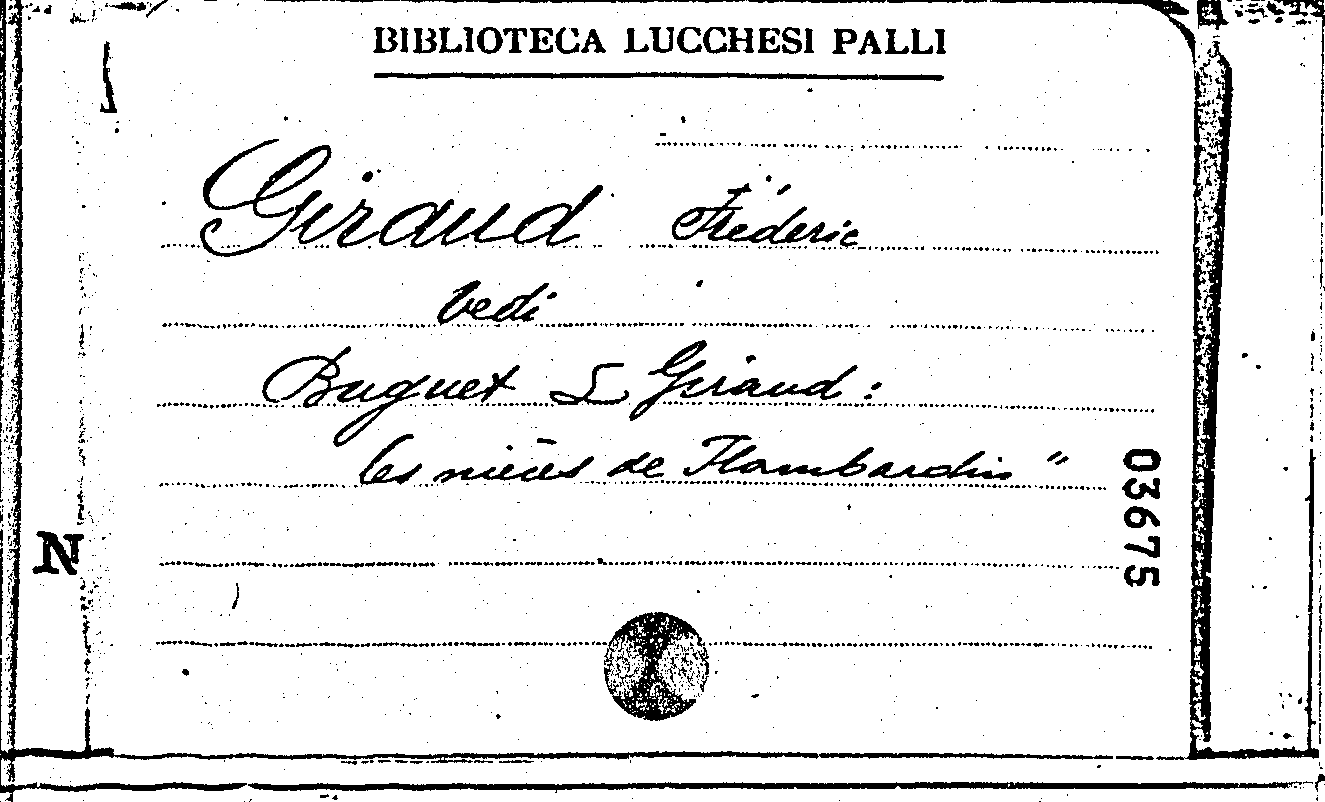 BIBLIOTECA LUCCHESI PALLI
Giraud Fréderic
Vedi
Buguet & Giraud:
Les nièces de Flambardin"
03675
N